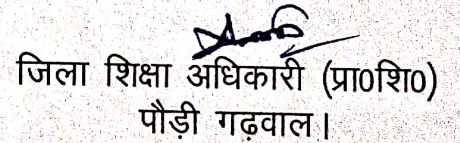 जिला शिक्षा अधिकारी (प्रा0शि0)
पौड़ी गढ़वाल।